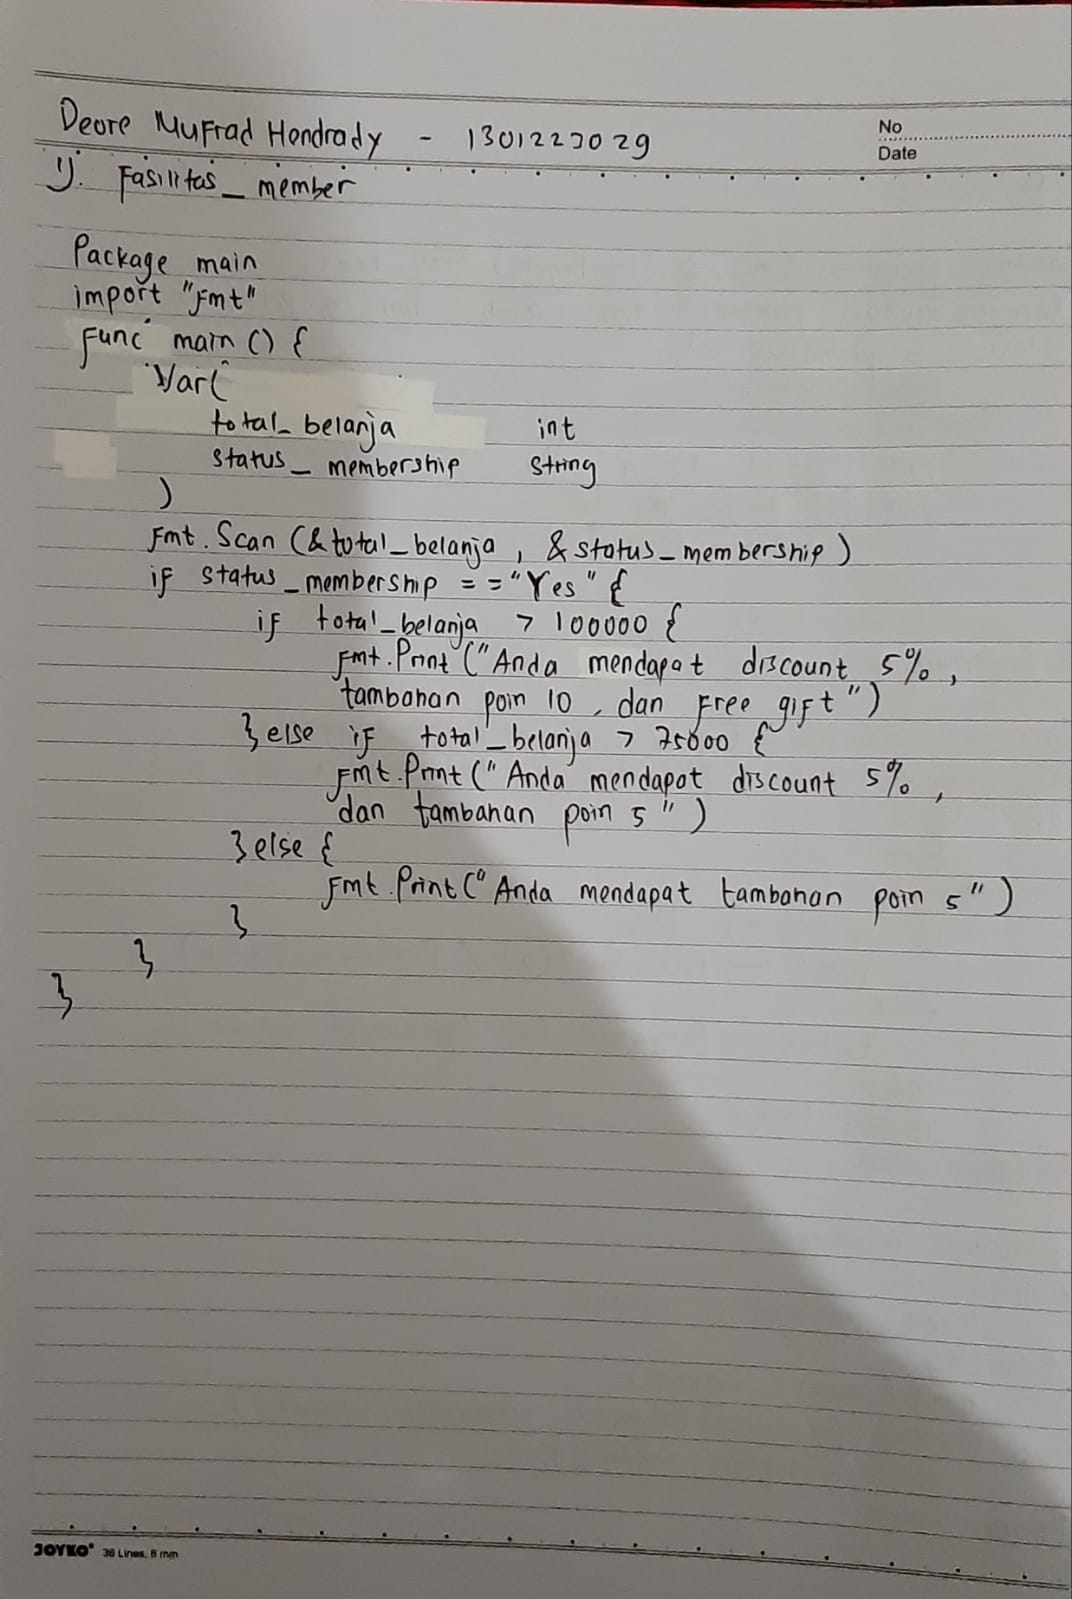 Deore Mufrad Hendrady - 1301223029
No
Date
1). Fasilitas_member
Package main
import "fmt"
func main () {
Var(
total_belanja int
status_membership string
)
fmt.Scan (&total_belanja, &status_membership)
if status_membership == "Yes" {
if total_belanja > 100000 {
fmt.Print ("Anda mendapat discount 5%,
tambahan poin 10, dan Free gift")
} else if total_belanja > 75000 {
fmt.Print (" Anda mendapat discount 5%,
dan tambahan poin 5 ")
} else {
fmt.Print (" Anda mendapat tambahan poin 5")
}
}
}
JOYKO 36 Lines, 8 mm